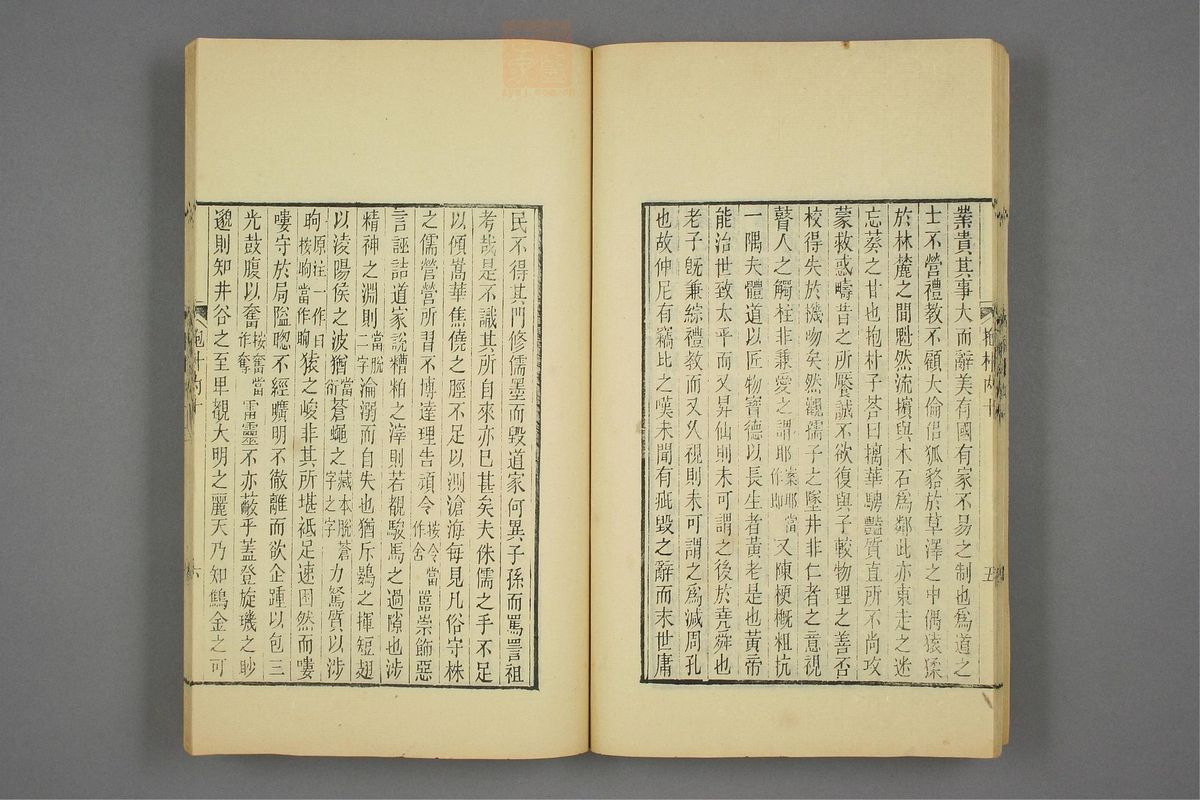 業貴其事大而辭美有國有家不易之制也爲道之
士不營禮教不顧大倫侶狐貉於草澤之中偶猿猱
於林麓之間魁然流擯與木石爲鄰此亦東走之迷
忘葵之甘也抱朴子荅曰摛華騁豔質直所不尚攻
蒙救惑疇昔之所饜誠不欲復與子較物理之善否
校得失於機吻矣然觀孺子之墜井非仁者之意視
瞽人之觸柱非兼愛之謂耶案耶當作即又陳梗概粗抗
一隅夫體道以匠物寶德以長生者黃老是也黃帝
能治世致太平而又昇仙則未可謂之後於堯舜也
老子旣兼綜禮教而又久視則未可謂之爲減周孔
也故仲尼有竊比之嘆未聞有疵毀之辭而末世庸
民不得其門修儒墨而毀道家何異子孫而罵詈祖
考哉是不識其所自來亦已甚矣夫侏儒之手不足
以傾嵩華焦僥之脛不足以測滄海每見凡俗守株
之儒營營所習不博達理告頑令按令當作舍嚚崇飾惡
言誣詰道家說糟粕之滓則若覩駿馬之過隙也涉
精神之淵則當脫二字淪溺而自失也猶斥鷃之揮短翅
以淩陽侯之波猶當衍蒼蠅之藏本脫蒼字之字力駑質以涉
昫原注一作日按昫當作眴猿之峻非其所堪祇足速困然而嘍
嘍守於局隘聰不經曠明不徹離而欲企踵以包三
光鼓腹以奮按奮當作奪雷靈不亦蔽乎蓋登旋璣之眇
邈則知井谷之至卑覩大明之麗天乃知鷦金之可
抱朴內十
六